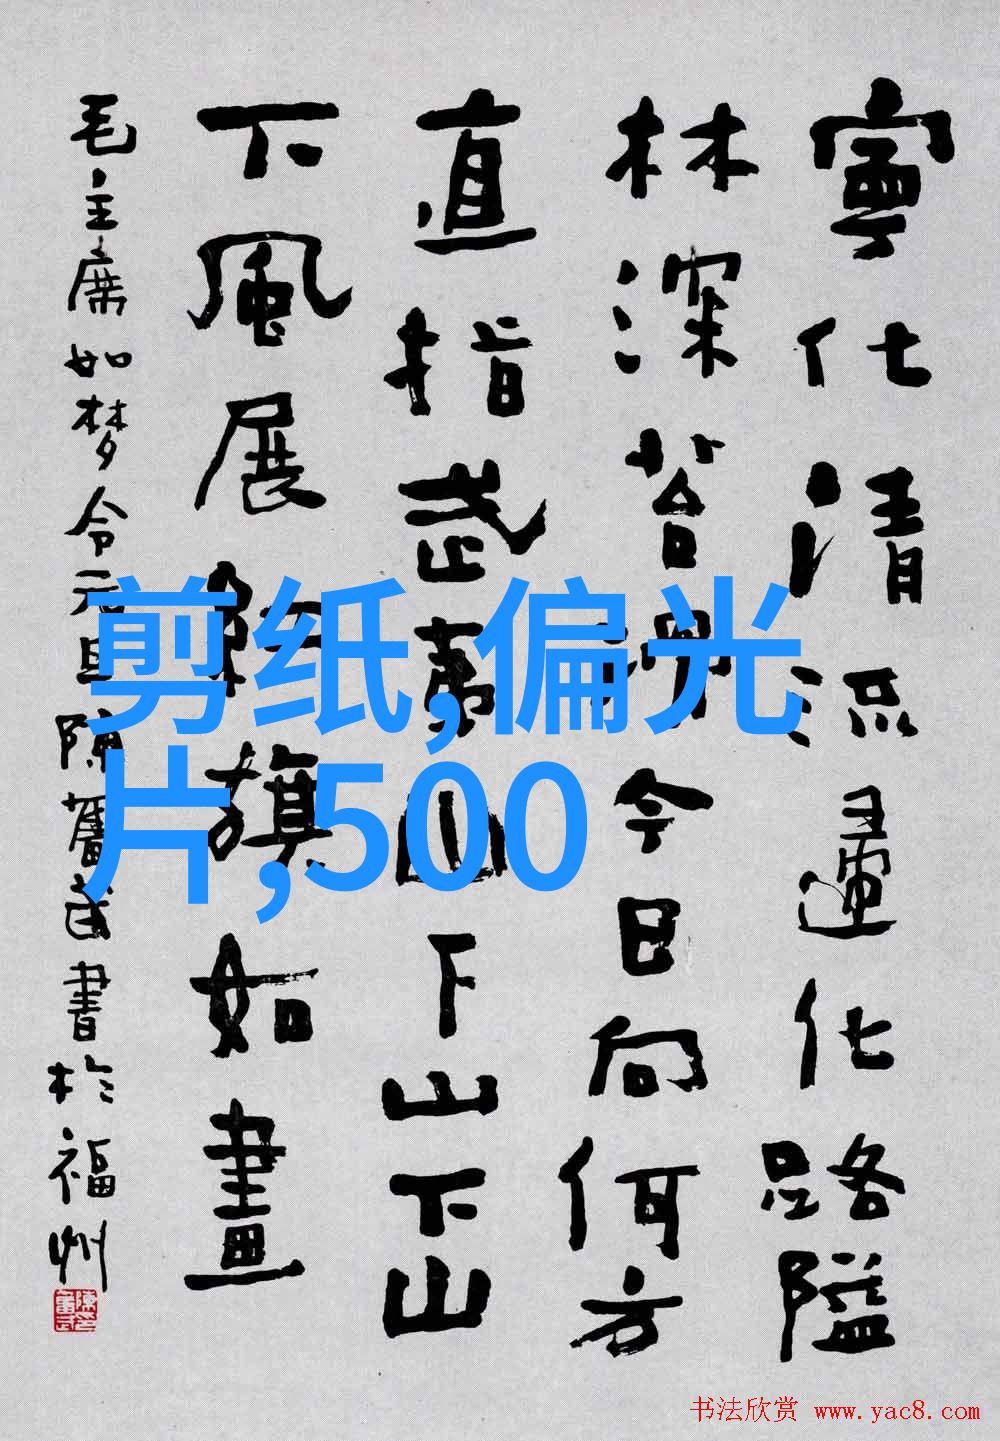 寧化清流歸化路隘
林深苔滑今日向何方
直指武夷山下山下山
下風展紅旗如畫
毛主席如梦令元旦 陳奮武書於福州
剪纸,偏光
片,500
书法欣赏 www.yac8.com